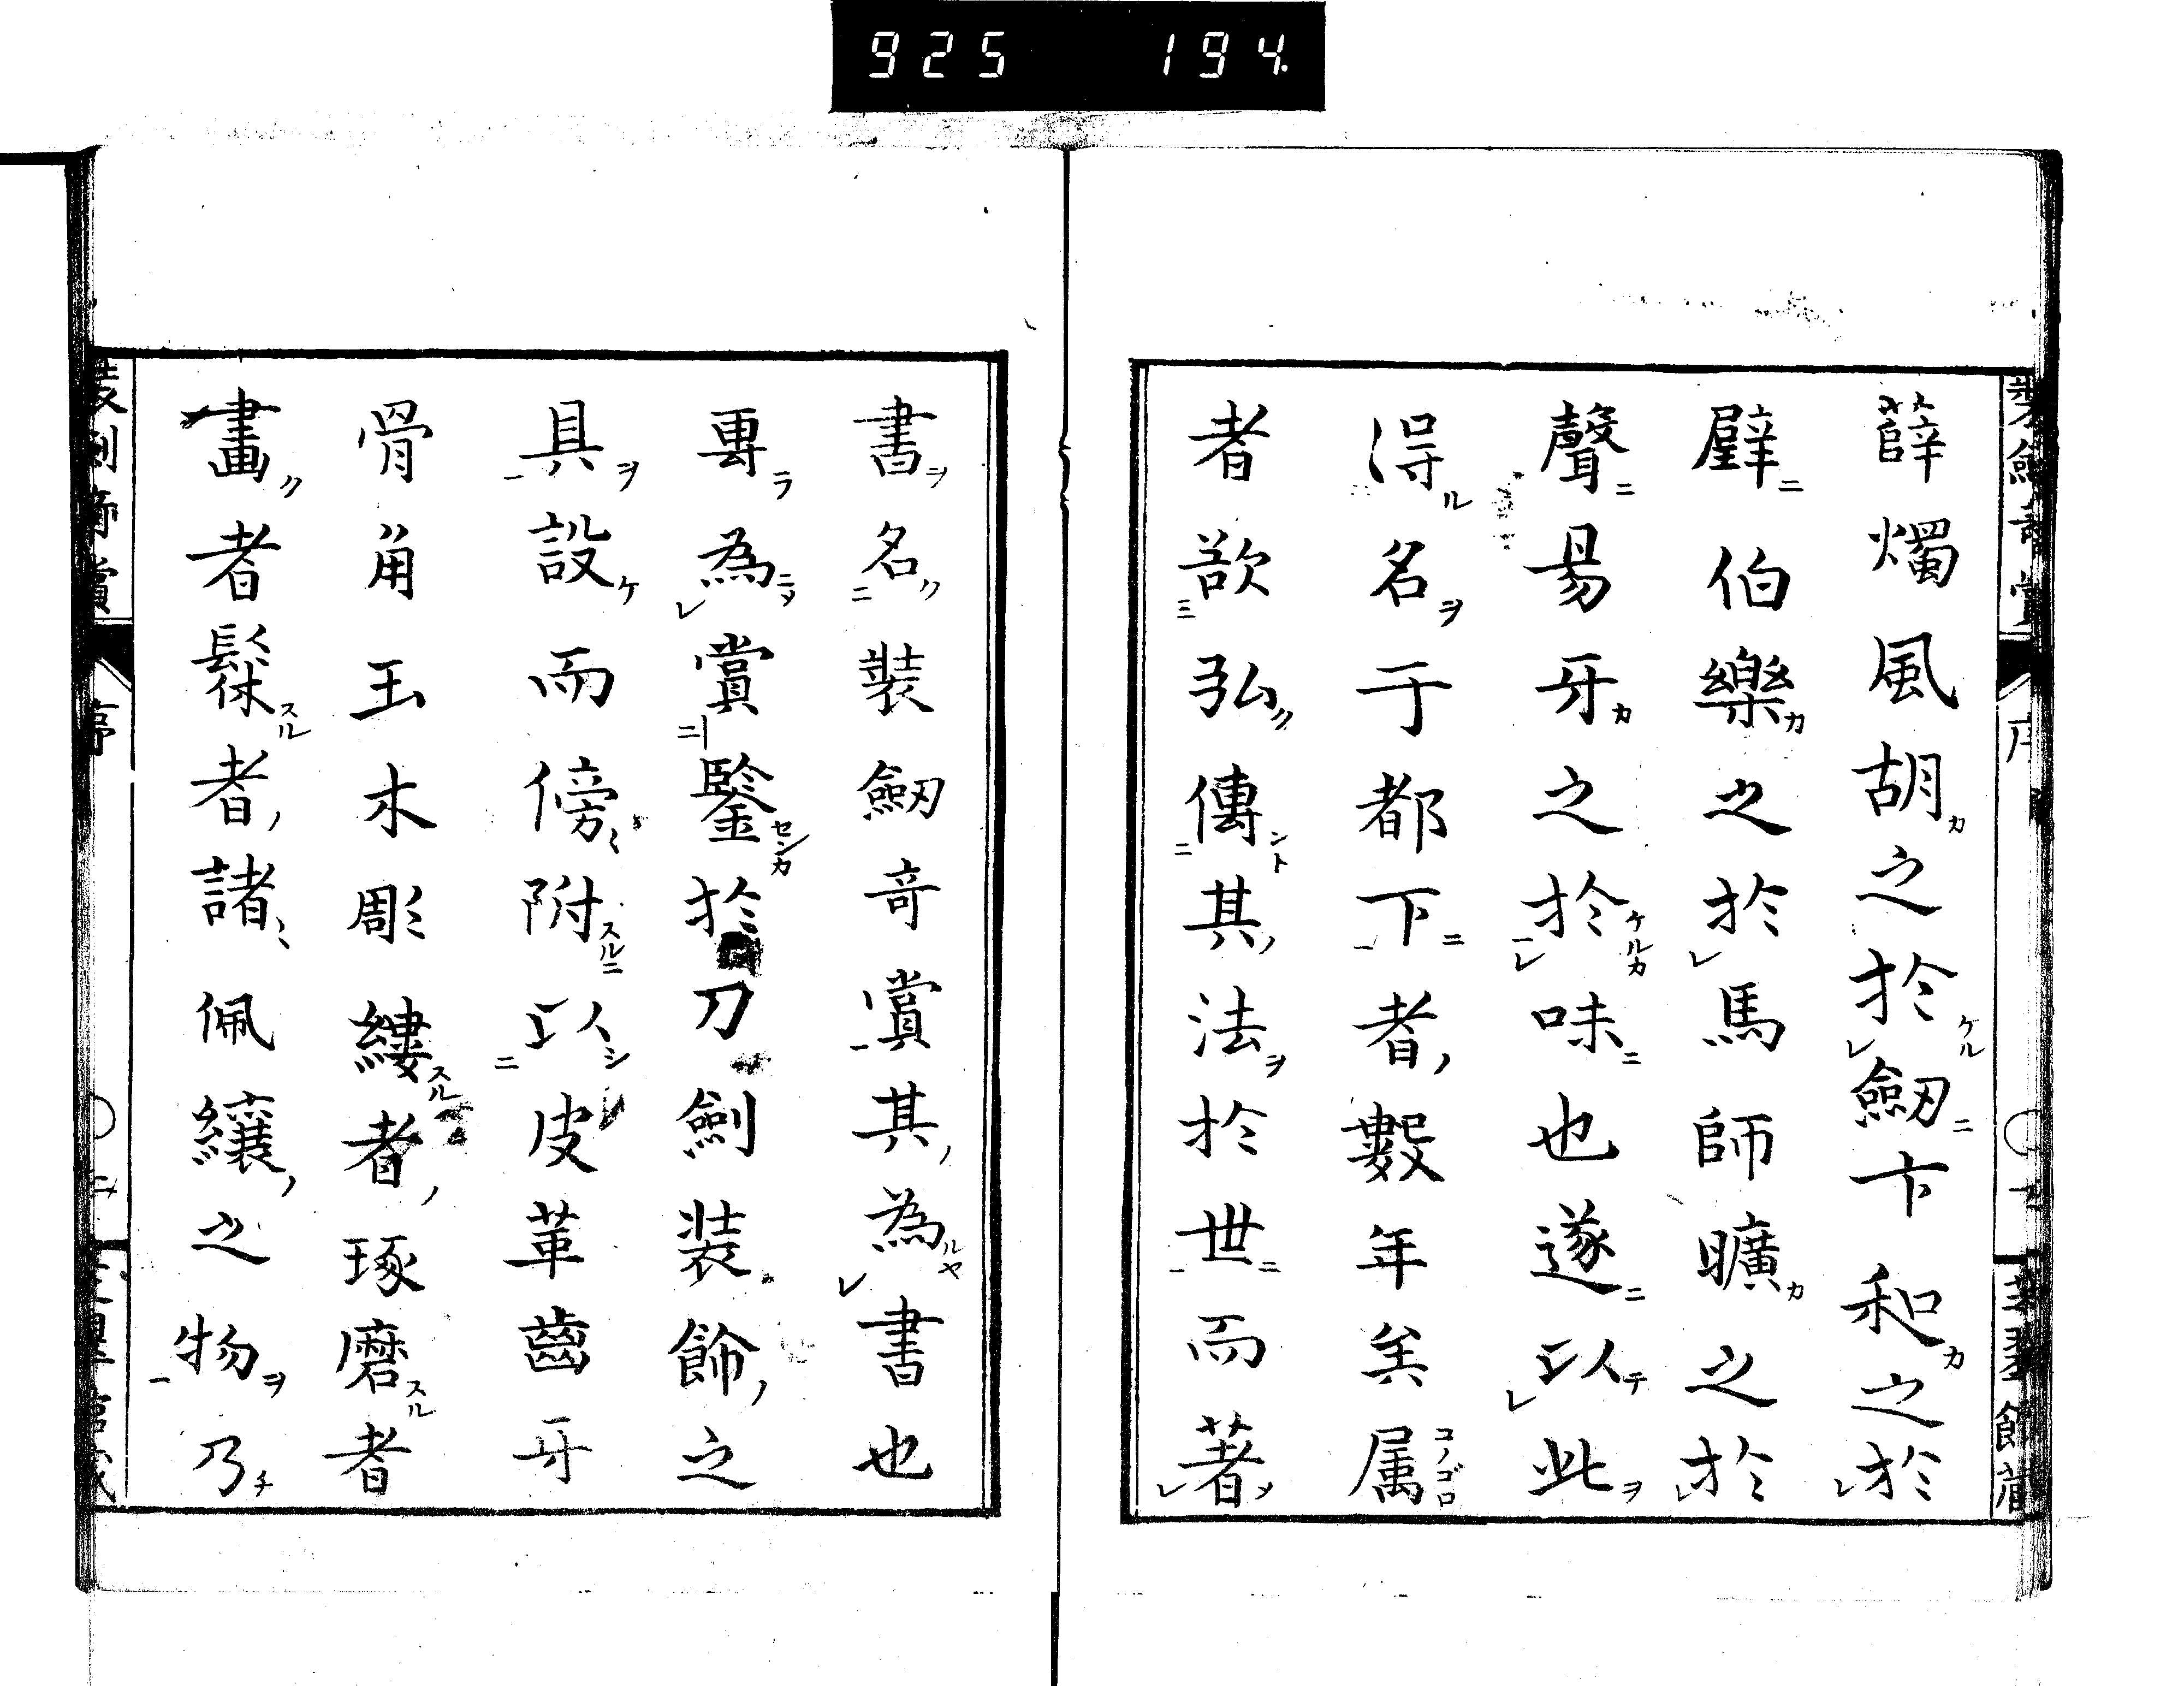 925 194
薛燭風胡之於劒卞和之於
璧伯樂之於馬師曠之於
聲易牙之於味也遂以此
得名于都下者數年矣属
者欲弘傳其法於世而著
書名裝劒奇賞其為書也
專為賞鑒於刀劍装飾之
具設而傍附以皮革齒牙
骨角玉木彫縷者琢磨者
畫者髹者諸佩纕之物乃